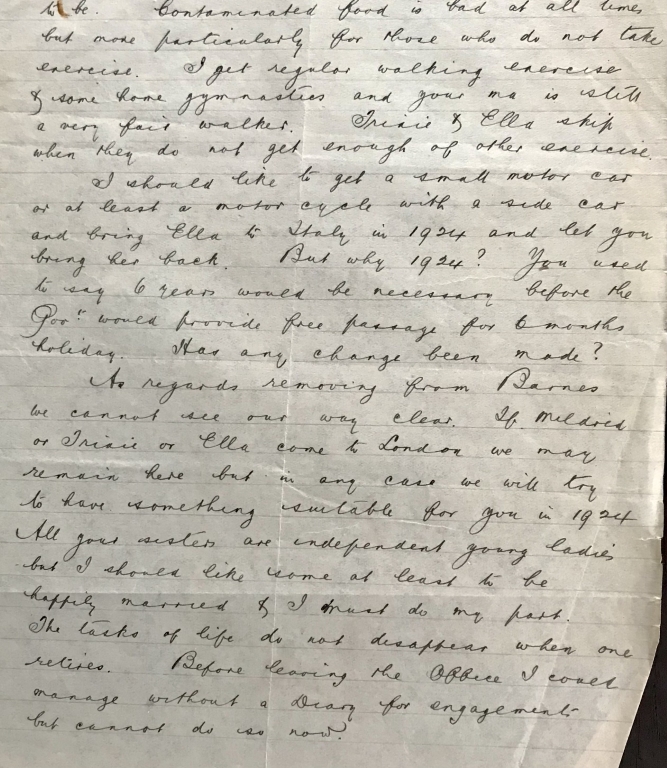 to be. Contaminated food is bad at all times
but more particularly for those who do not take
exercise. I get regular walking exercise
& some home gymnastics and your ma is still
a very fair walker. Trixie & Ella skip
when they do not get enough of other exercise.
I should like to get a small motor car
or at least a motor cycle with a side car
and bring Ella to Italy in 1924 and let you
bring her back. But why 1924? You used
to say 6 years would be necessary before the
Govt would provide free passage for 6 months
holiday. Has any change been made?
As regards removing from Barnes
we cannot see our way clear. If Mildred
or Trixie or Ella come to London we may
remain here but in any case we will try
to have something suitable for you in 1924
All your sisters are independent young ladies
but I should like some at least to be
happily married & I must do my part.
The tasks of life do not disappear when one
retires. Before leaving the Office I could
manage without a Diary for engagements
but cannot do so now.